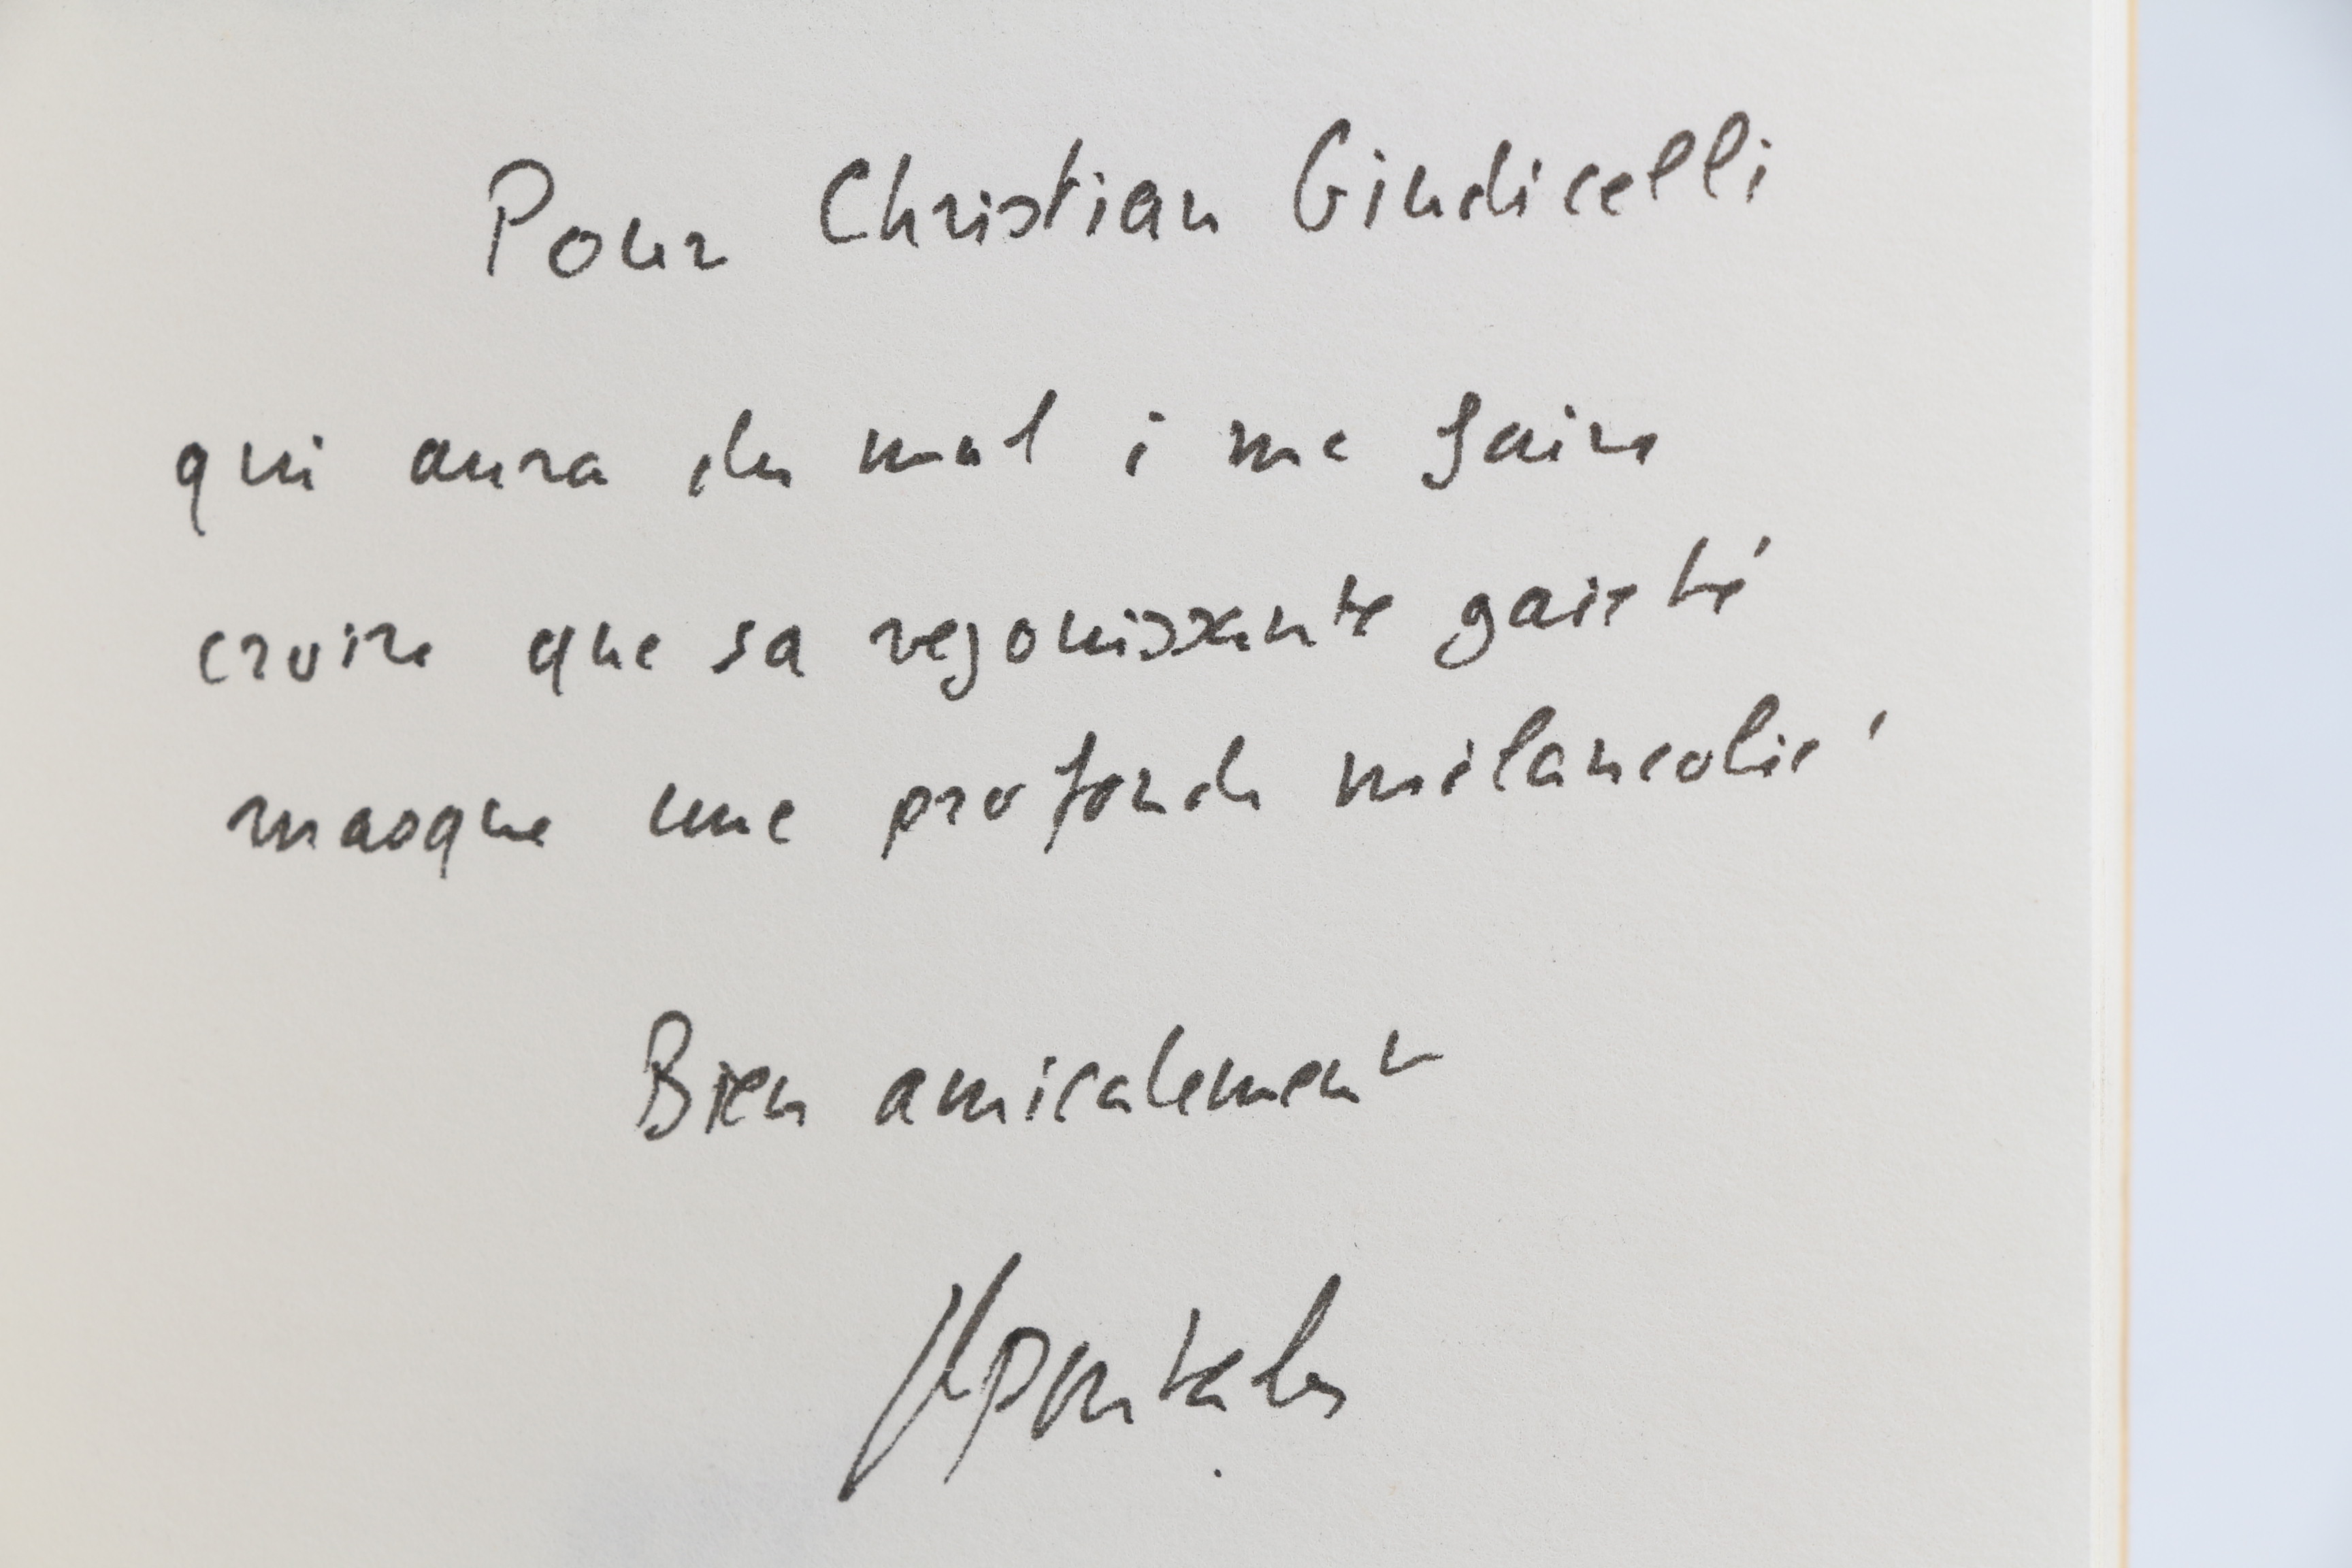 Pour Christian Giudicelli
qui aura du mal à me faire
croire que sa rejouissante gaieté
masque une profonde mélancolie !
Bien amicalement
JBPontalis